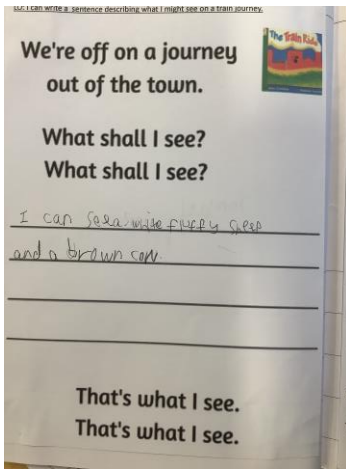 LO: I can write a sentence describing what I might see on a train journey.
The Train Ride
We're off on a journey
out of the town.
What shall I see?
What shall I see?
I can see a wite fluffy sheep
and a brown cow.
That's what I see.
That's what I see.